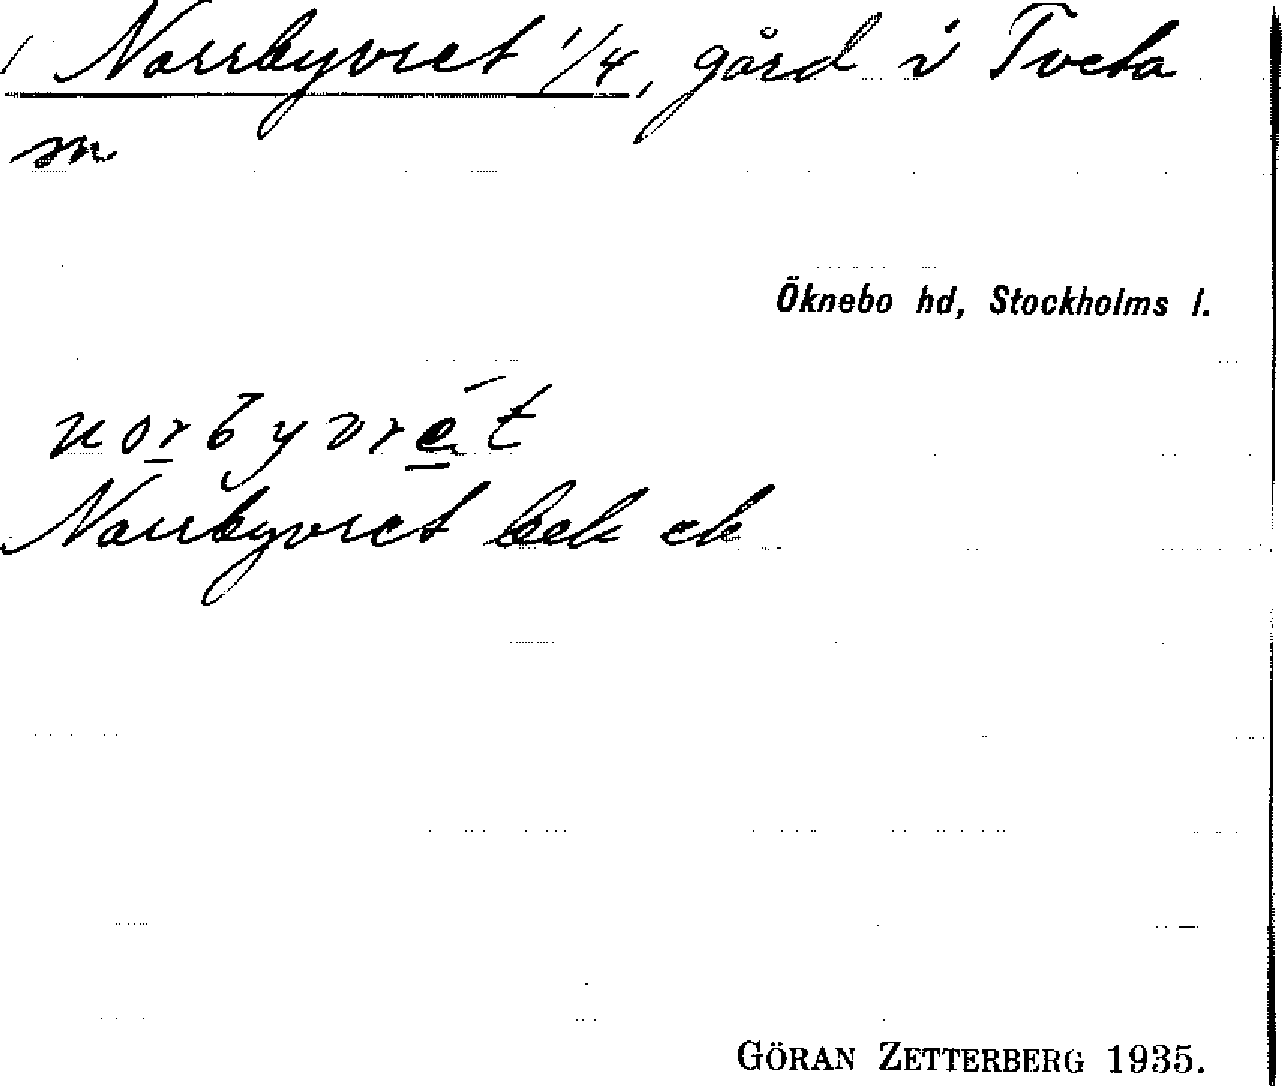 Norrbyvret 1/4, gård i Tveta
sn
Öknebo hd, Stockholms l.
norbyvrét
Norrbyvret bek ek
GÖRAN ZETTERBERG 1935.